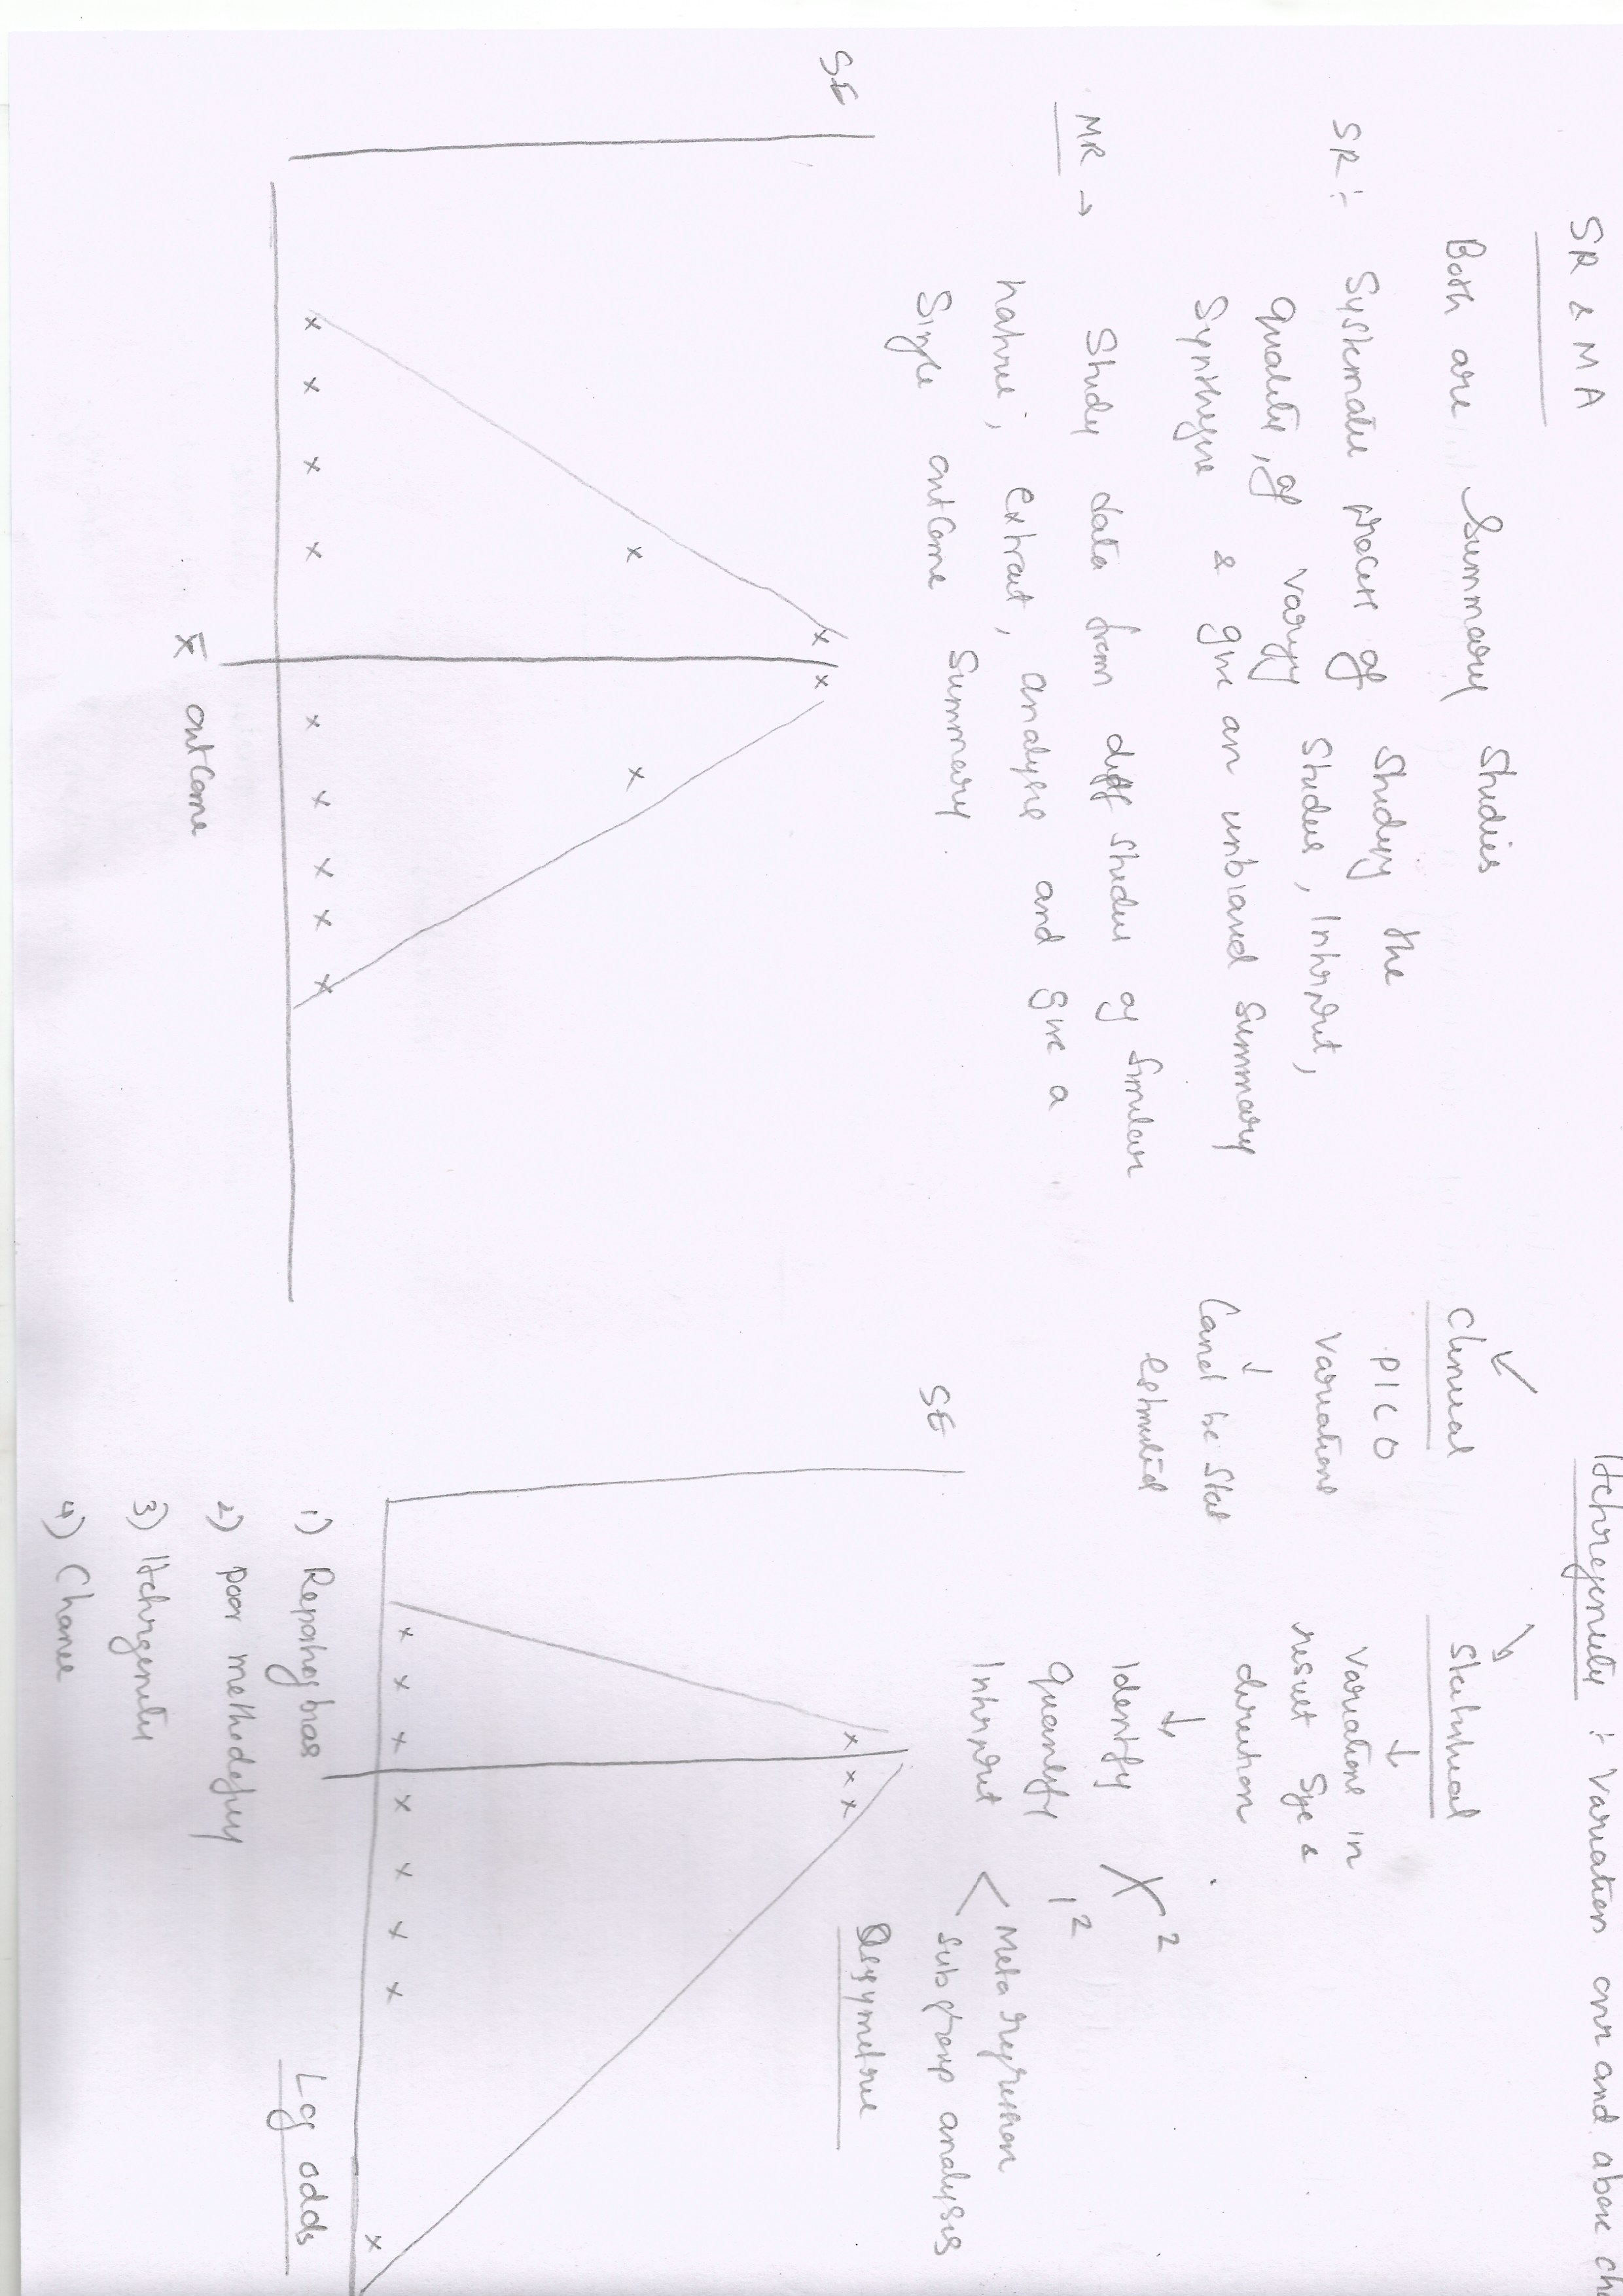 SR & MA
Both are Summary Studies
SR :- Systematic process of Studying the
quality, of varying Studies, Interpret,
Synthesize & give an unbiased Summary
MR → Study data from diff studies of Similar
nature, extract, analyse and give a
Single outcome Summary
SE
x̄ outcome
Heterogeneity : Variation over and above ch
Clinical
PICO
Variations
↓
Cannot be Stat
estimated
Statistical
↓
Variations in
result Size &
direction
↓
Identify χ²
Quantify I²
Interpret < Meta regression
Subgroup analysis
SE
Asymmetric
Log odds
1) Reporting bias
2) poor methodology
3) Heterogeneity
4) Chance